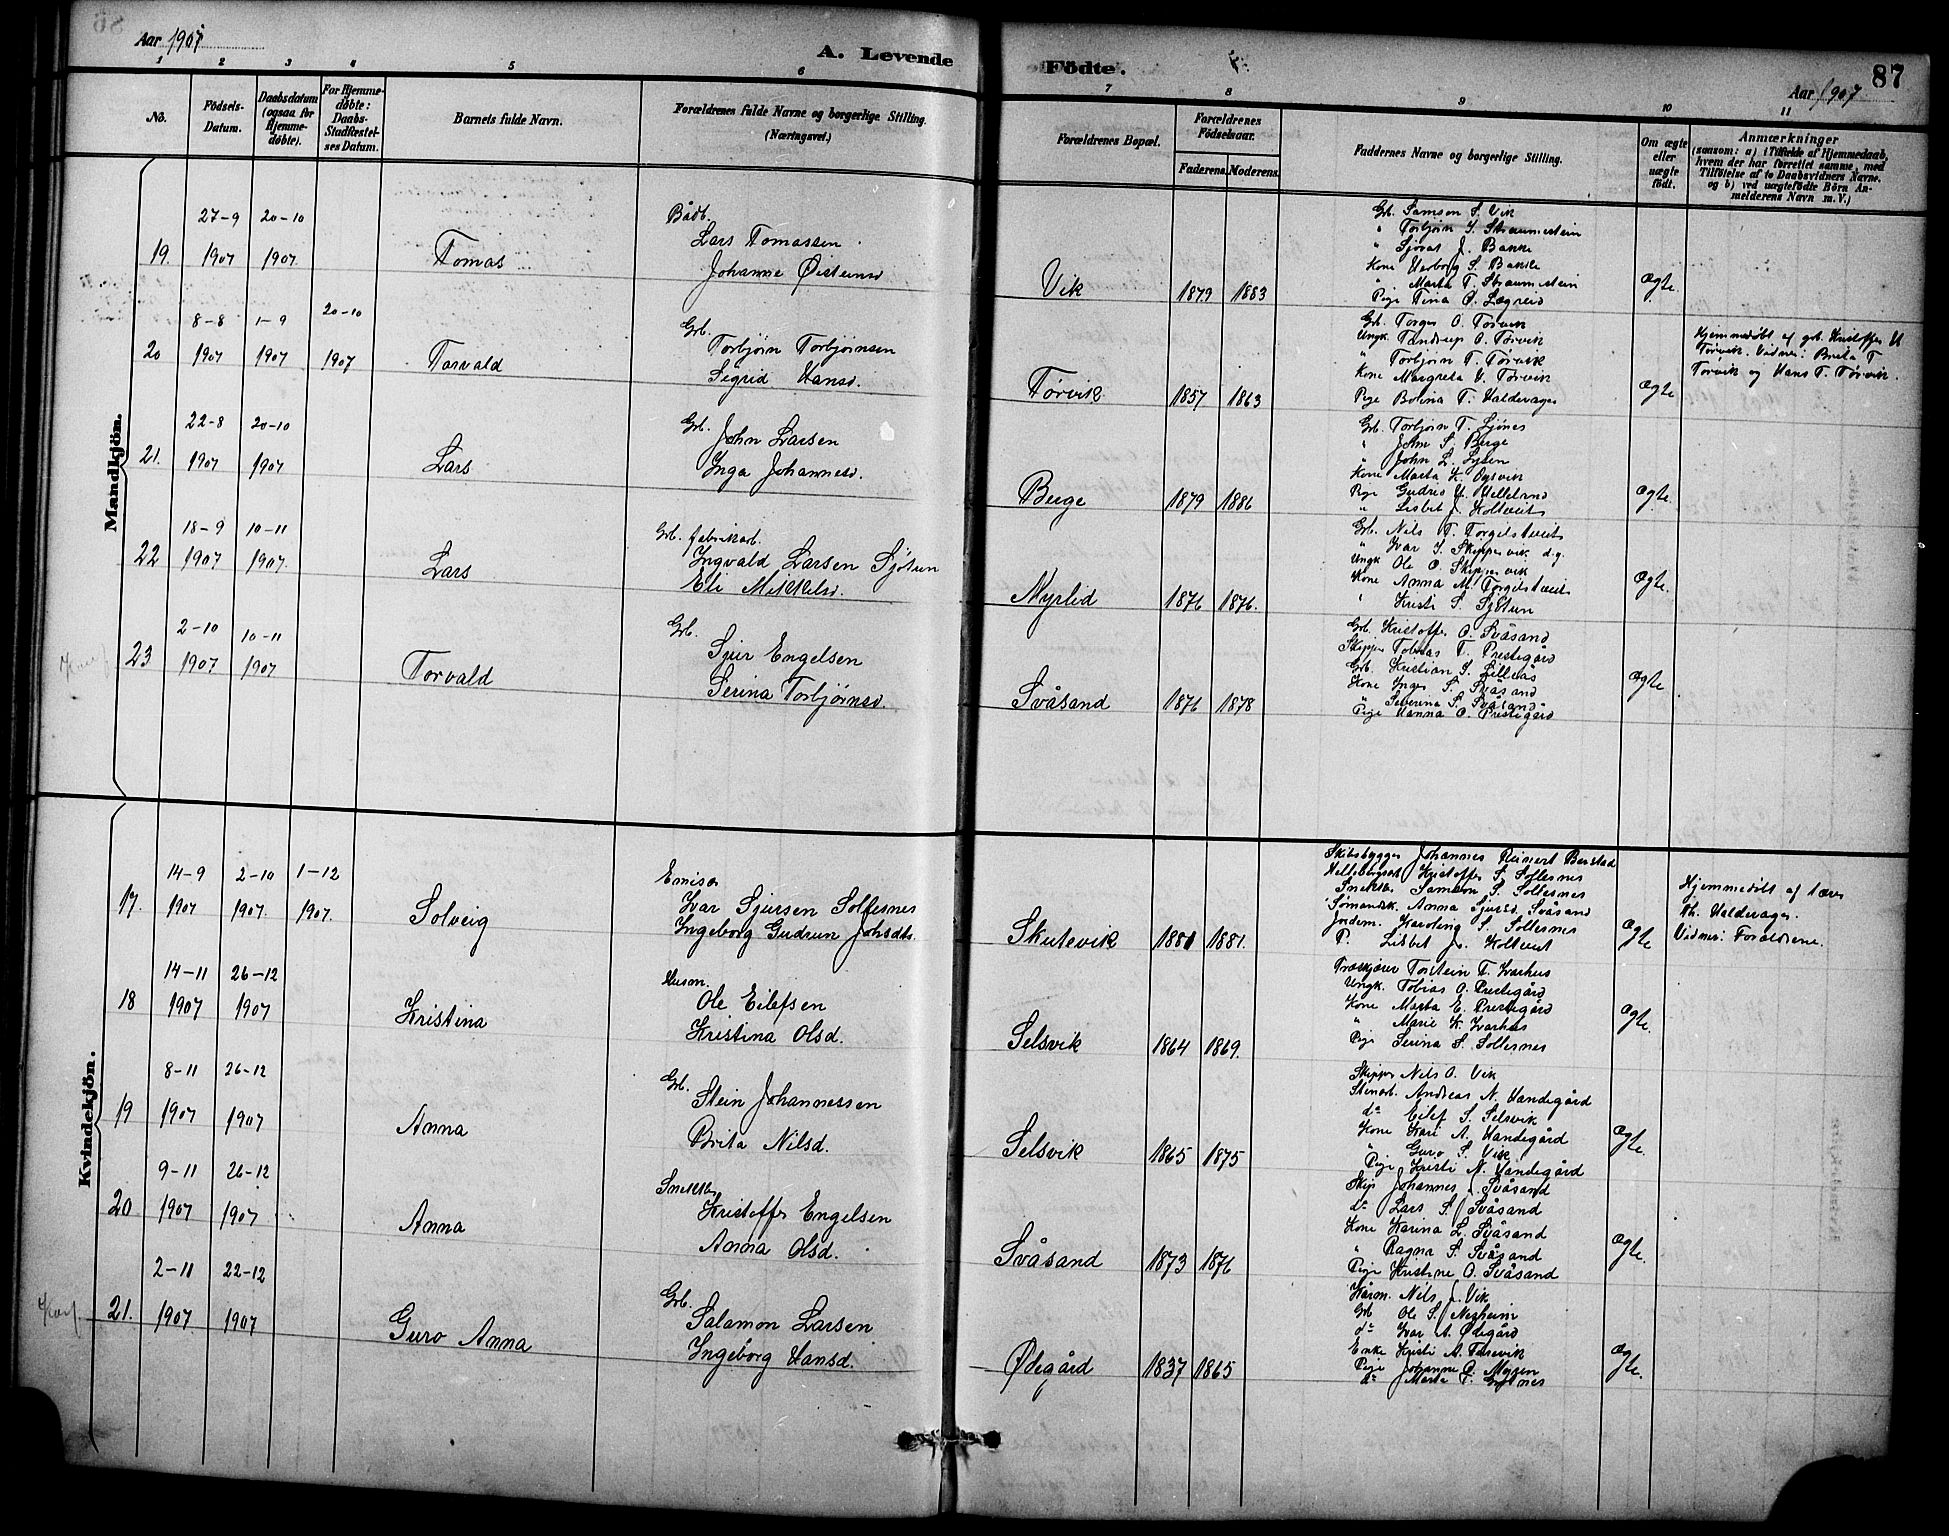 Aar 1907
A. Levende
Födte.
Aar 1907
87
1 2 3 4 5 6 7 8 9 10 11
No.
Födsels-Datum.
Daabsdatum (ogsaa for Hjemme-döbte).
For Hjemme-döbte: Daabs-Stadfæstel-ses Datum.
Barnets fulde Navn.
Forældrenes fulde Navne og borgerlige Stilling.
(Næringsvei.)
Forældrenes Bopæl.
Forældrenes Födselsaar.
Faderens. Moderens.
Faddernes Navne og borgerlige Stilling.
Om ægte eller uægte födt.
Anmærkninger
(saasom: a) i Tilfælde af Hjemmedaab,
hvem der har forrettet samme, med
Tilföielse af to Daabsvidners Navne.
og b) ved uægtefödte Börn An-
melderens Navn m. V.)
Mandkjön.
27-9 20-10
19. 1907 1907
Tomas
Bådb.
Lars Tomassen
Johanne Øistensd
Vik 1879 1883
Gb. Samson S. Vik
" Torbjørn S. Straumestein
" Sjovat J. Bakke
Kone Herborg S. Bakke
" Marta T. Straumestein
Pige Tina O. Lægreid
Ægte.
8-8 1-9 20-10
20 1907 1907 1907
Torvald
Grb.
Torbjørn Torbjørnsen
Sigrid Hansd.
Tørvik 1857 1863
Gb. Torger O. Tørvik
Ungk. Tandrup O. Tørvik
" Torbjørn T. Tørvik
Kone Margreta V. Tørvik
Pige Bolina T. Haldorager
Ægte
Hjemmedøbt af grb. Kristoffer H
Tørvik. Vidner: Brita T
Tørvik og Hans T. Tørvik.
22-8 20-10
21. 1907 1907
Lars
Grb.
John Larsen
Inga Johannesd.
Berge 1879 1886
Grb. Torbjørn T. Ljønes
" John S. Berge
" John L. Lysen
Kone Marta K. Vysvik
Pige Gudrid H. Helleland
" Lisbet J. Koltveit
Ægte.
18-9 10-11
22 1907 1907
Lars
Grb. fabrikarb.
Ingvald Larsen Sjøtun
Eli Mikkelsd.
Myrlid 1876 1876.
Grb. Nils T. Torgilstveit
" Ivar S. Skippervik d.y.
Ungk Ole O. Skippervik
Kone Anna M. Torgilstveit
" Kristi S. Sjøtun
Ægte.
2-10 10-11
23 1907 1907
Torvald
Grb.
Sjur Engelsen
Serina Torbjørnsd.
Svåsand 1876 1878
Grb. Kristoffer O. Svåsand
Skipper Tobias T. Prestegård
Grb. Kristian S. Lilleås
Kone Inger S. Svåsand
" Severina S. Svåsand
Pige Hanna O. Prestegård
Ægte
Kvindekjön.
14-9 2-10 1-12
17. 1907 1907. 1907.
Solveig
Emisær
Ivar Sjursen Solfesnes
Ingeborg Gudrun Johsdtr.
Skutevik 1881 1881.
Skibsbygger Johannes Reinert Berstad
Kristoffer S. Solfesnes
Snekker Samson S. Solfesnes
Sømandsk. Anna Sjursd. Svåsand
Jordem. Karoline S. Solfesnes
P. Lisbet Jo. Koltveit
Ægte
Hjemmedøbt af lærer
Th. Haldorager.
Vidner: Forældrene.
14-11 26-12
18 1907 1907
Kristina
Husm.
Ole Eilefsen
Kristina Olsd.
Selsvik 1864 1869.
Torstein T. Ivarhus
Ungk. Tobias O. Prestegård
Kone Marta E. Prestegård
" Marie K. Ivarhus
Pige Serina S. Solfesnes
Ægte.
8-11 26-12
19 1907 1907
Anna
Grb.
Stein Johannessen
Brita Nilsd.
Selsvik 1865 1875
Skipper Nils O. Vik
Stenarb. Andreas N. Handegård
do Eilef S. Selsvik
Kone Kari A. Handegård
" Guro S. Vik
Pige Kristi N. Handegård
Ægte.
9-11 26-12
20 1907 1907
Anna
Snekker
Kristoffer Engelsen
Anna Olsd.
Svåsand 1873 1876
Skip Johannes J. Svåsand
do Lars S. Svåsand
Kone Karina L. Svåsand
" Ragna S. Svåsand
Pige Kristine O. Svåsand
Ægte.
2-11 22-12
21. 1907 1907
Guro Anna
Grb.
Salamon Larsen
Ingeborg Hansd.
Ødegård 1837 1865
Kårm. Nils J. Vik
Grb Ole S. Nesheim
do Ivar A. Ødegård
Enke Kristi A. Torsvik
Pige Johanne O. Mygen
do Marta
Ægte.